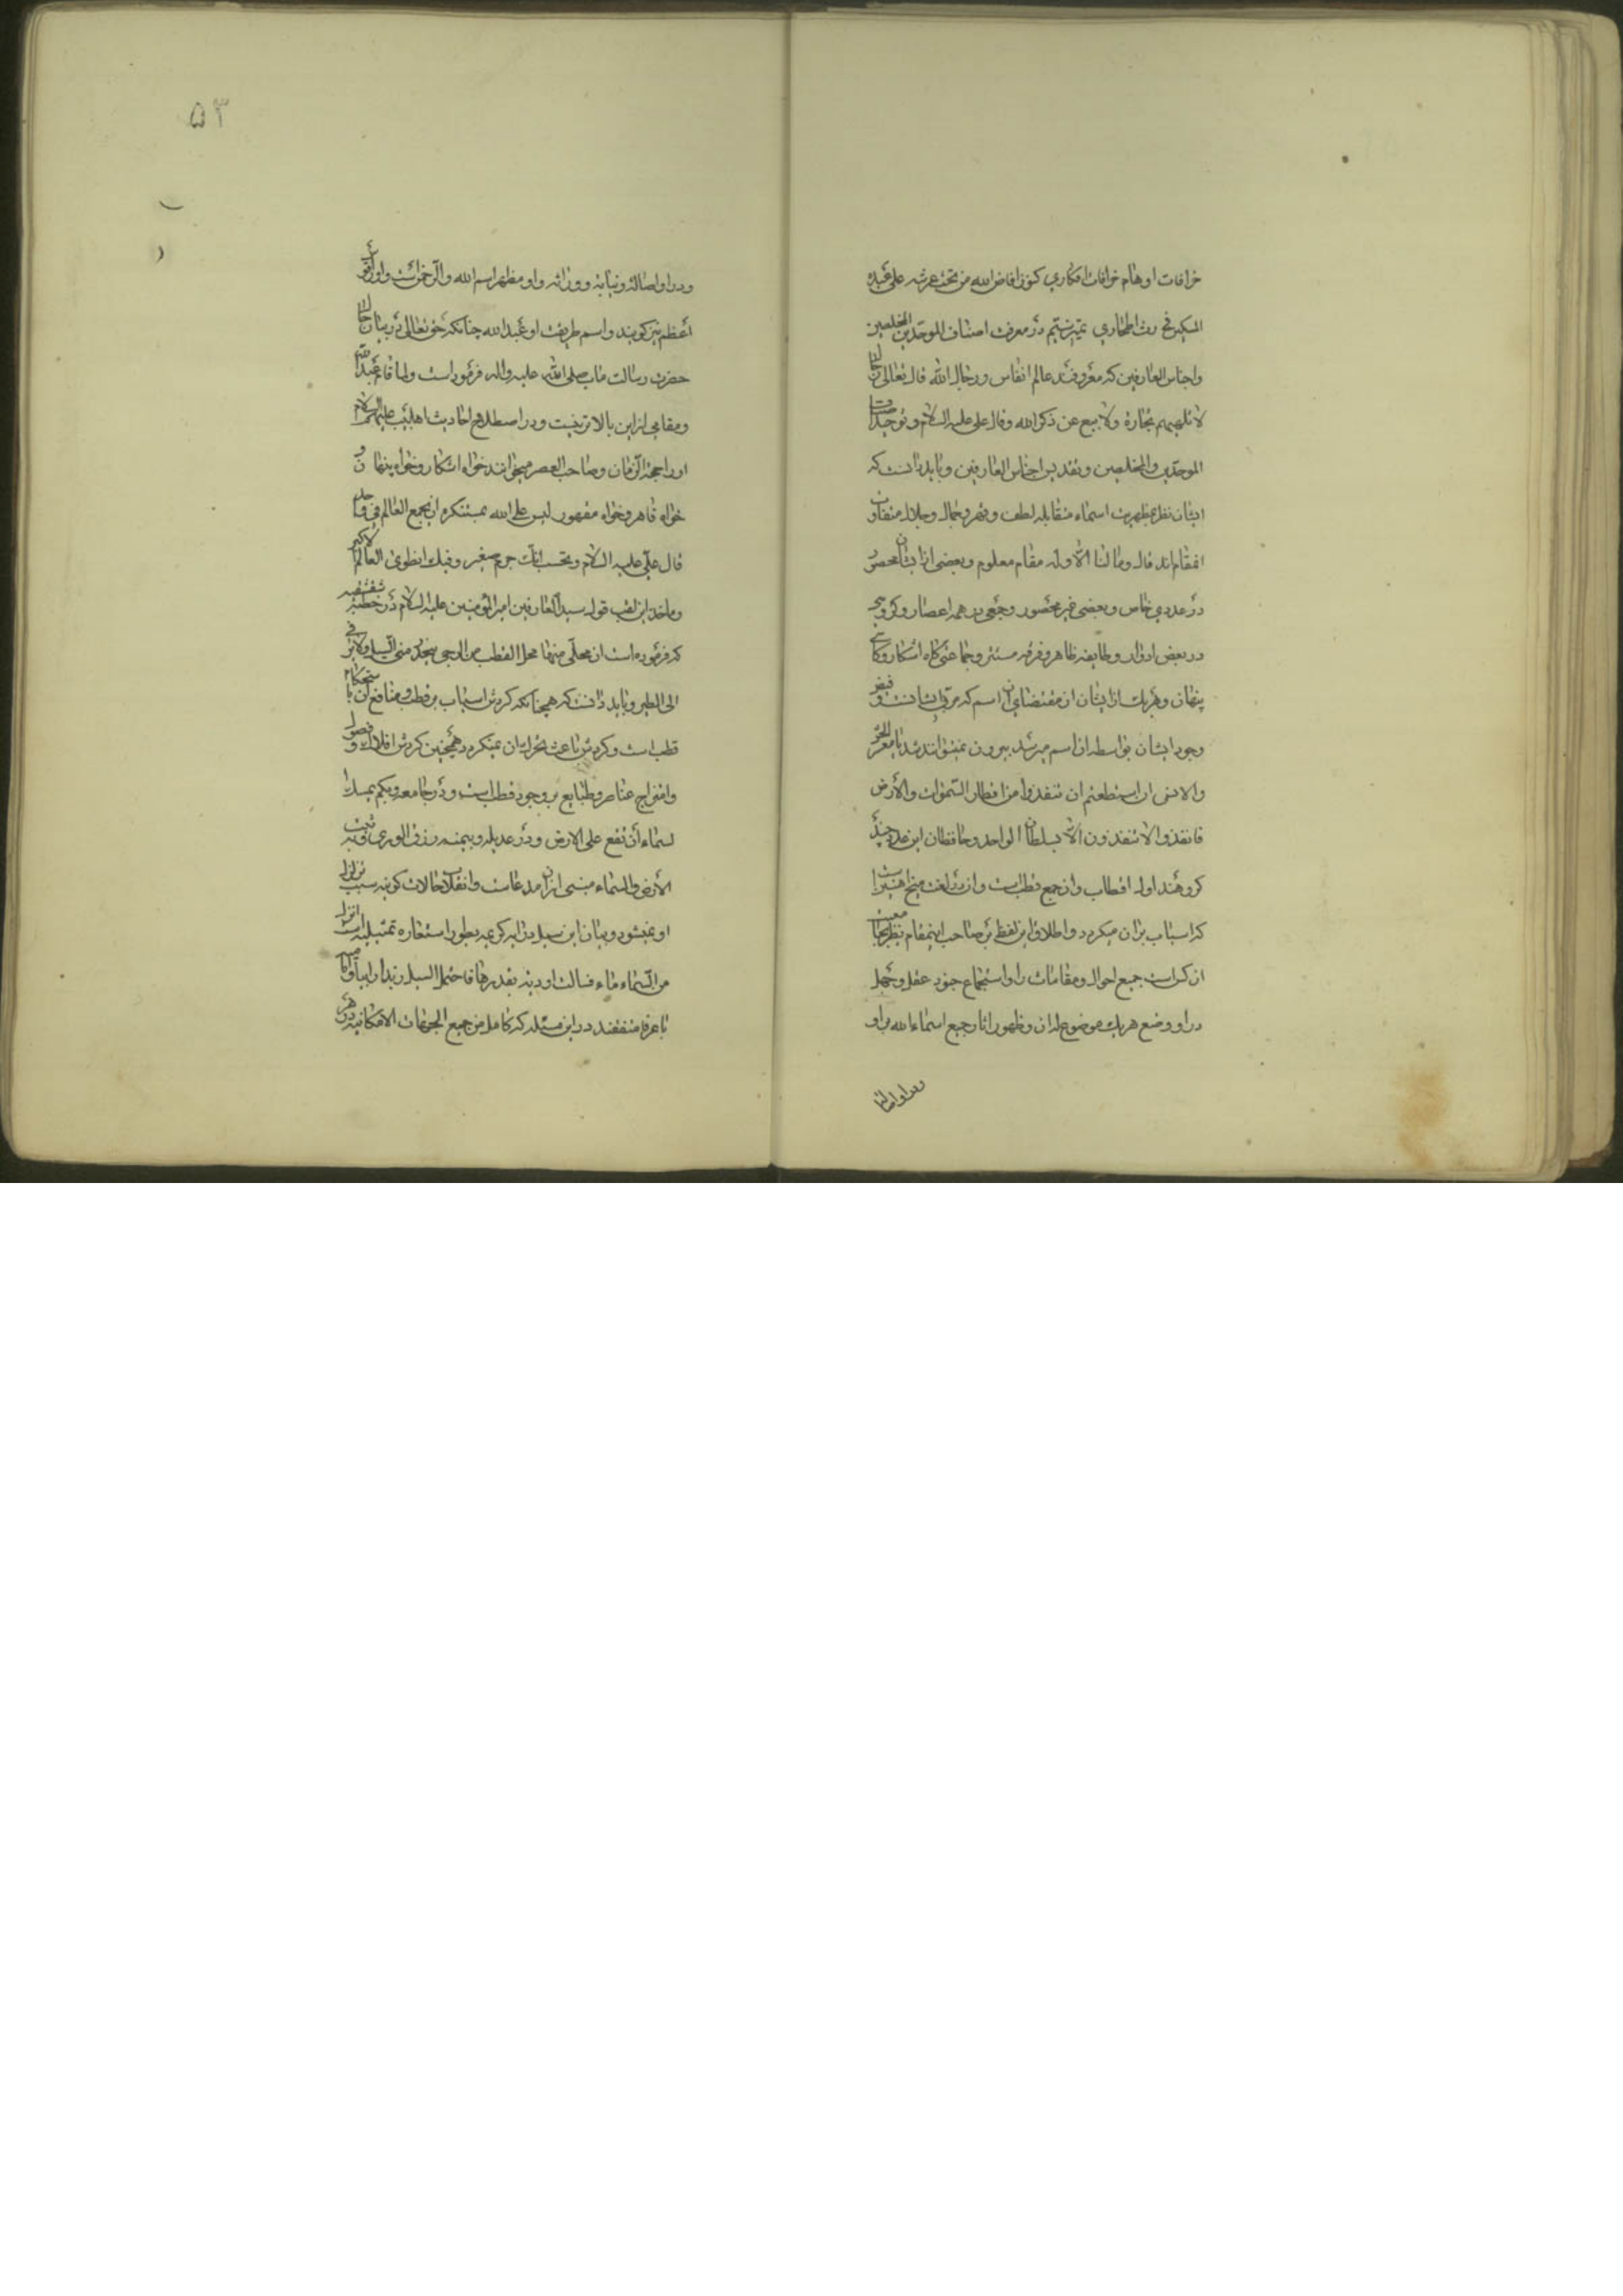 خرافات اوهام خرافات افکاری کنوز افاض الله من تحت عرشه علی عبده
المسکین فی رشد در معرفت اصناف الموحدین المخلصین
واجناس العارفین که معروفند عالم انفاس ورجال الله قال تعالی رجال
لا تلهیهم تجارة ولا بیع عن ذکر الله وقال علی علیه السلام وتوحید
الموحدین والمخلصین وتقدیس اجناس العارفین وباید دانست که
ایشان نظر بمظهریت اسماء متقابله لطف وقهر وجمال وجلال متفاوت
المقام اند قال وما لنا الا وله مقام معلوم وبعضی از ایشان محصور
در عددی خاص وبعضی غیر محصور وجمعی در همه اعصار وگروهی
در بعض ادوار وطایفه ظاهر وفرقه مستتر وجماعتی گاه آشکار وگاهی
پنهان وهر یک از ایشان از مقتضای آن اسم که مربی ایشانست و فیض
وجود ایشان بواسطه آن اسم میرسد بیرون نمیتوانند شد یا معشر الجن
والانس ان استطعتم ان تنفذوا من اقطار السموات والأرض
فانفذوا لا تنفذون الا بسلطان الواحد وحافظان این عدد چند
گروهند اول اقطاب وآن جمع قطب است وآن در لغت میخ آهنین است
که آسیاب بر آن میگردد واطلاق این لفظ بر صاحب اینمقام نظر بجامعیت
آن کس است جمیع احوال ومقامات را واستجماع جنود عقل وجهل
در او ووضع هر یک موضوع له آن وظهور آثار جمیع اسماء الله در او
ودر او اصالة
۵۳
ودر او اصالة ونیابة ووراثه واو مظهر اسم الله والرحمن است واو را غوث
أعظم نیز گویند واسم طریقت او عبدالله چنانکه حق تعالی در بیان حال
حضرت رسالت مآب صلی الله علیه واله فرموده است ولما قام عبدالله
ومقامی از این بالاتر نیست ودر اصطلاح احادیث اهلبیت علیهم السلام
او را حجة الزمان وصاحب العصر میخوانند خواه آشکار وخواه پنهان و
خواه قاهر وخواه مقهور لیس علی الله بمستنکر ان یجمع العالم فی واحد
قال علی علیه السلام وتحسب انک جرم صغیر وفیک انطوی العالم الاکبر
وماخذ این لقب قول سید العارفین امیر المؤمنین علیه السلام در خطبه شقشقیه
که فرموده است ان محلی منها محل القطب من الرحی ینحدر منی السیل ولا یرقی
الی الطیر وباید دانست که همچنانکه گردش آسیاب بر قطب ومنافع آن با
قطب است وگردش باعث میگردد همچنین گردش افلاک و فصول
وامتزاج عناصر وطبایع بر وجود قطب است ودر جامعه وبکم یمسک
السماء أن تقع علی الارض ودر عدیله وبیمنه رزق الوری وبه ثبتت
الأرض والسماء مبنی از آن مدعاست وانقلاب حالات کونیه سبب
او نمیشود وبیان این سبیل در ایه کریمه بطور استعاره تمثیلیه است انزل
من السماء ماء فسالت اودیة بقدرها فاحتمل السیل زبدا رابیا
تا عرفا متفقند در این مسئله که کامل من جمیع الجهات الامکانیه در هر